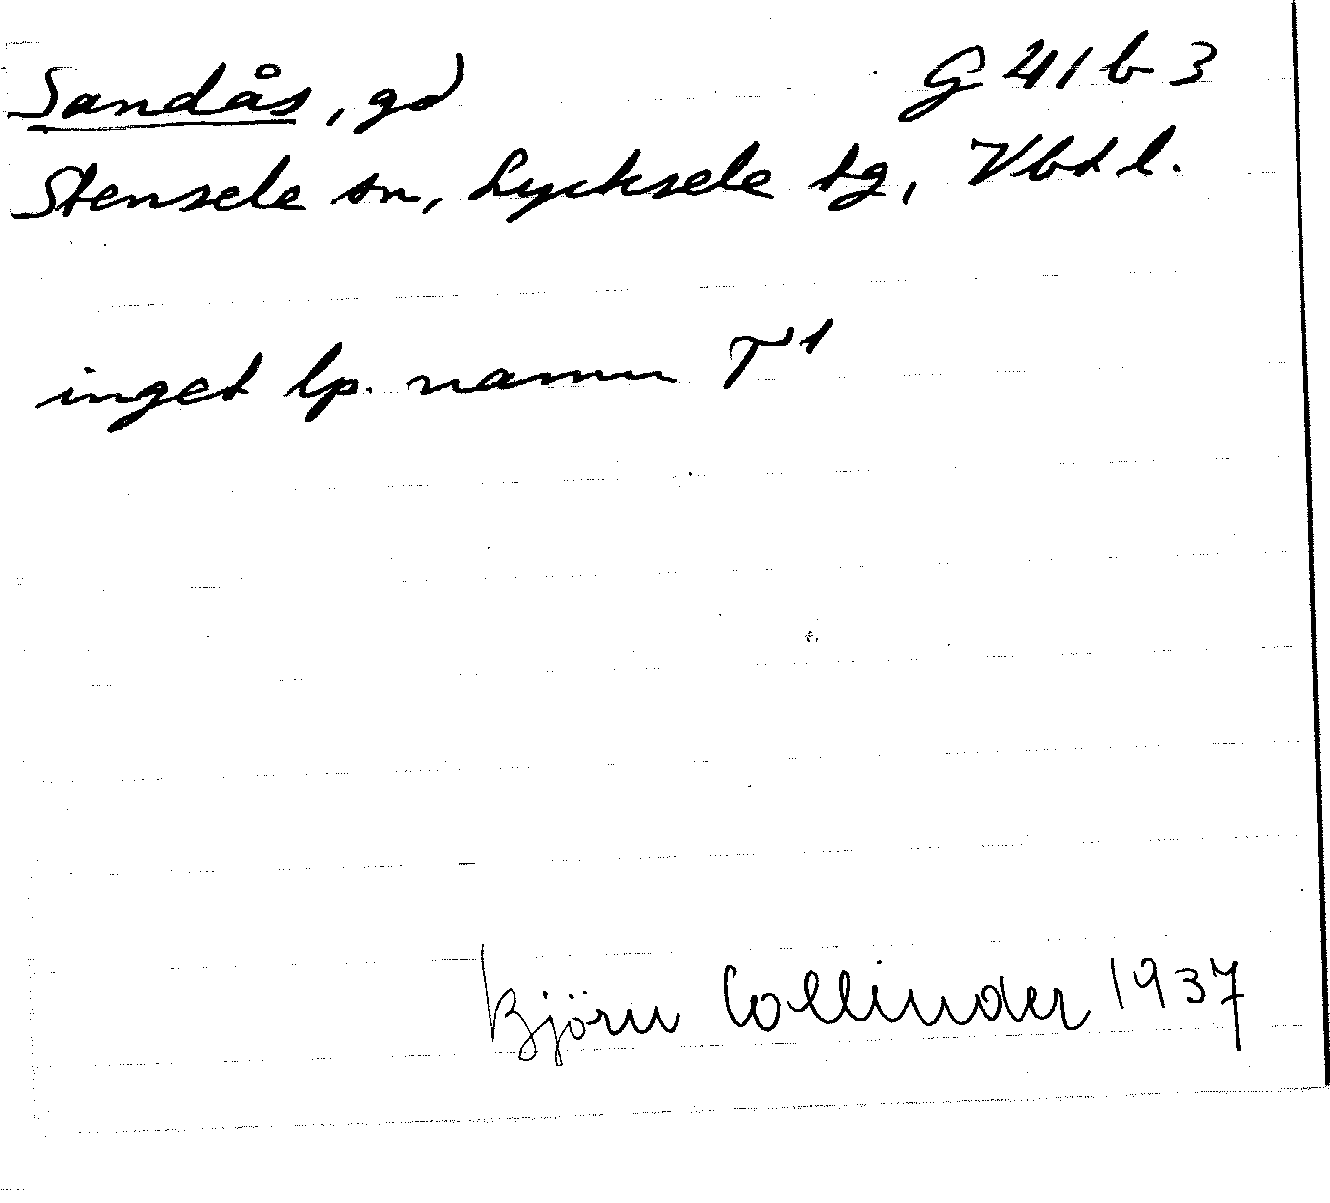 Sandås, gd G 41 b 3
Stensele sn, Lycksele tg, Vbtl.
inget lp. namn T¹
Björn Collinder 1937